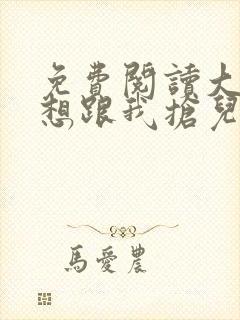 免費閱讀大
想跟我搶兒
馬愛農